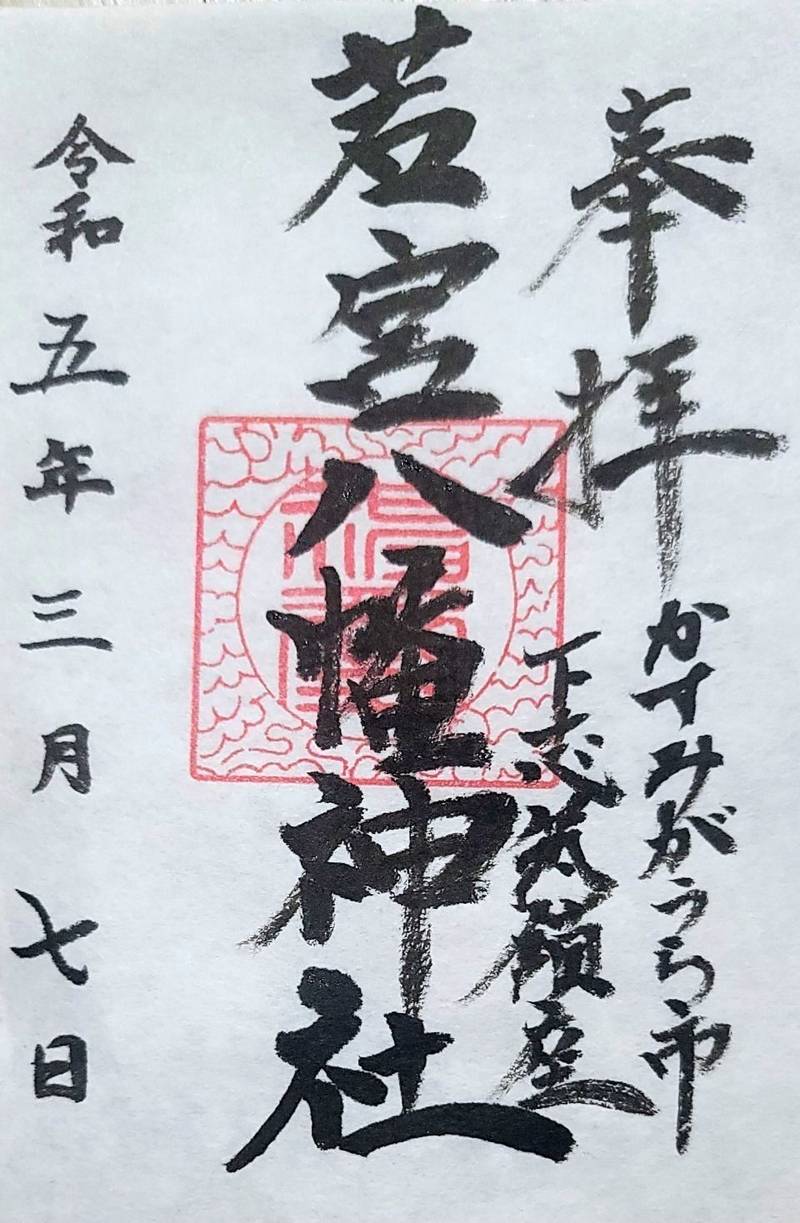 奉拝
かすみがうら市
下志筑鎮座
若宮八幡神社
令和五年三月七日